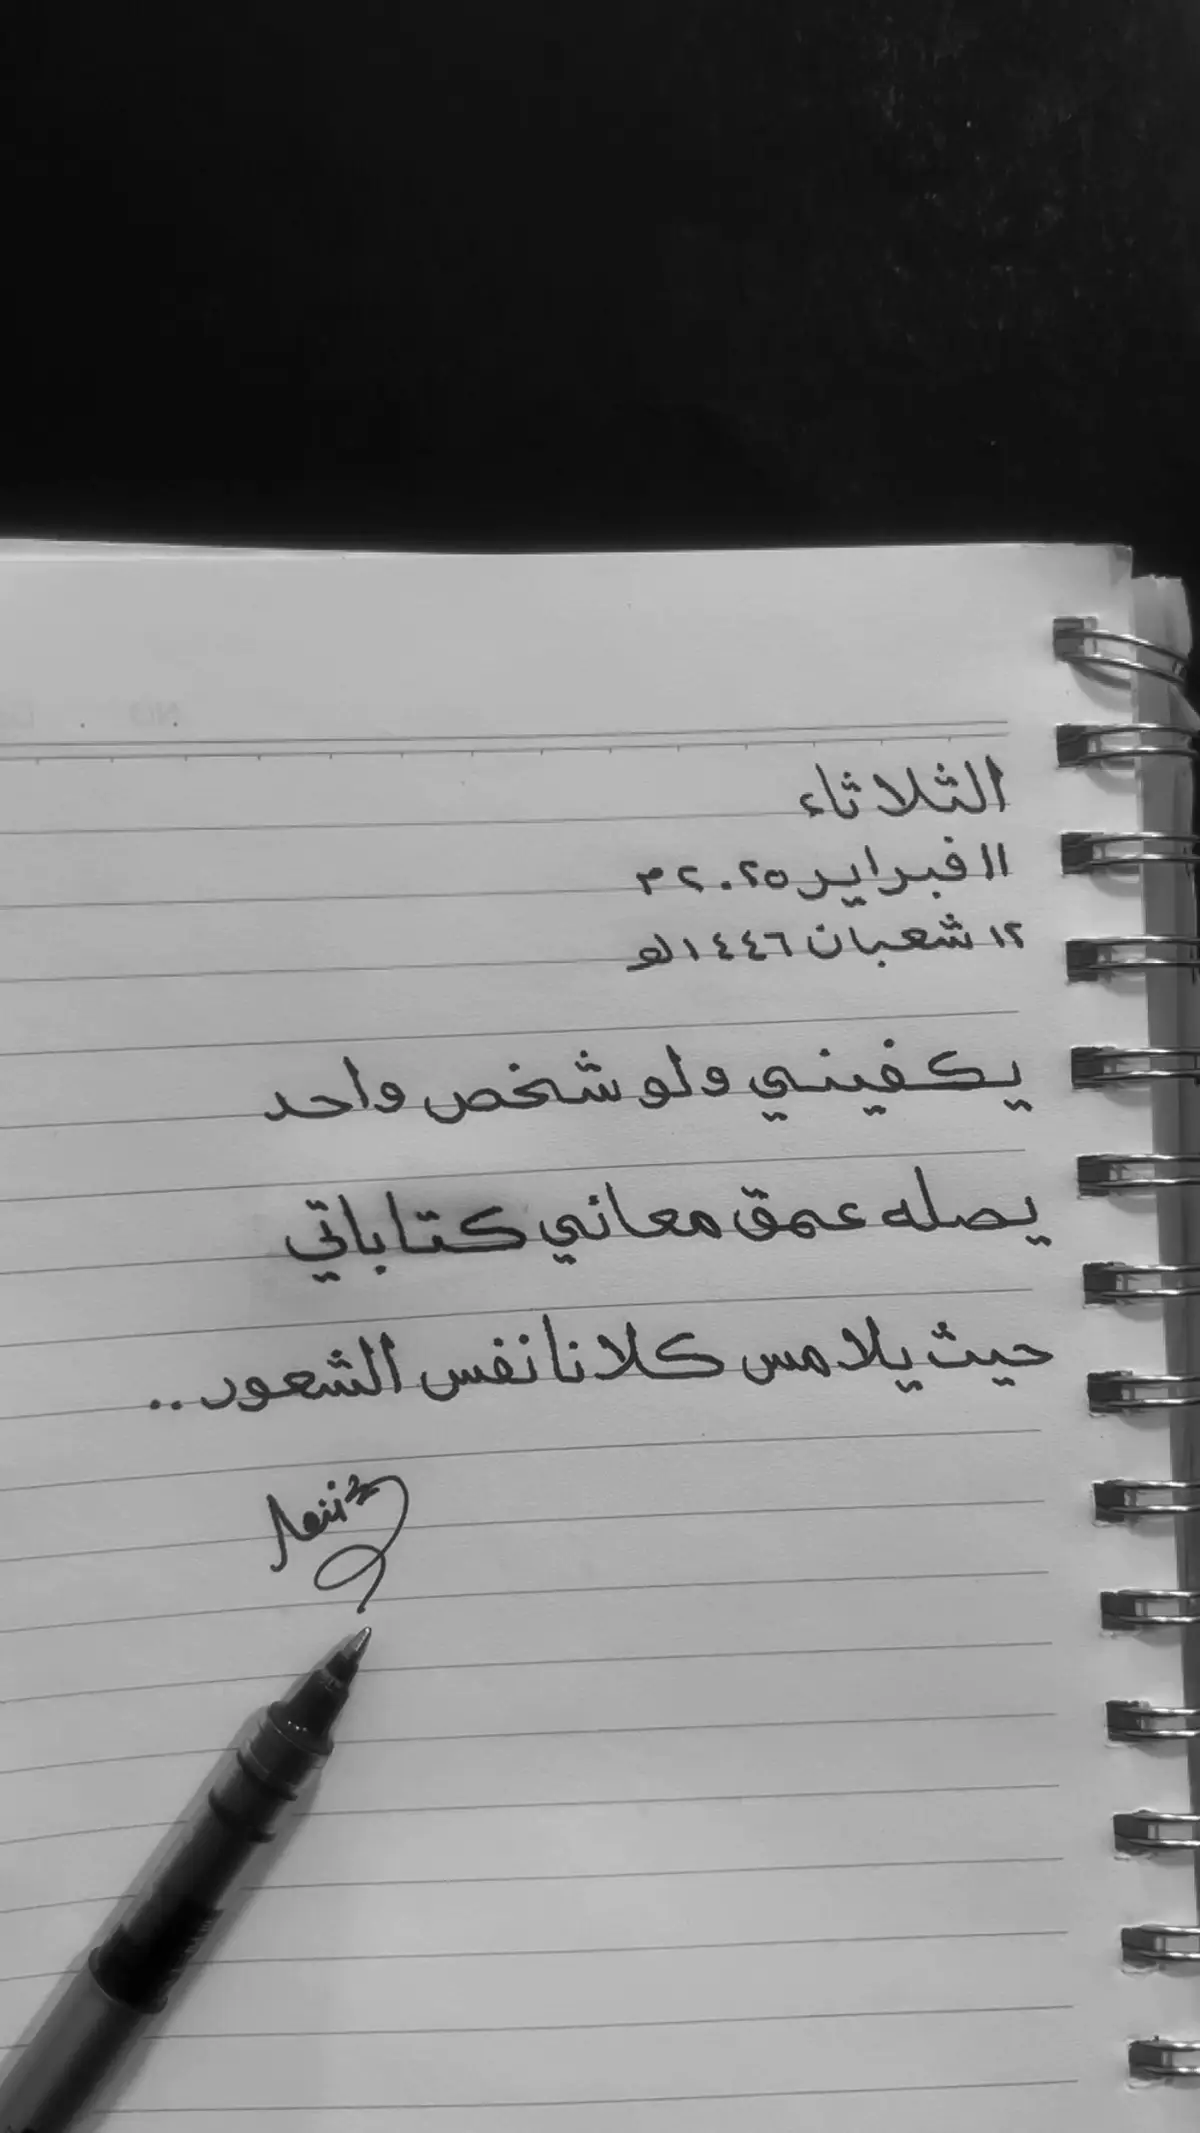 الثلاثاء
١١ فبراير ٢٠٢٥ م
١٢ شعبان ١٤٤٦هـ
يكفيني ولو شخص واحد
يصله عمق معاني كتاباتي
حيث يلامس كلانا نفس الشعور..